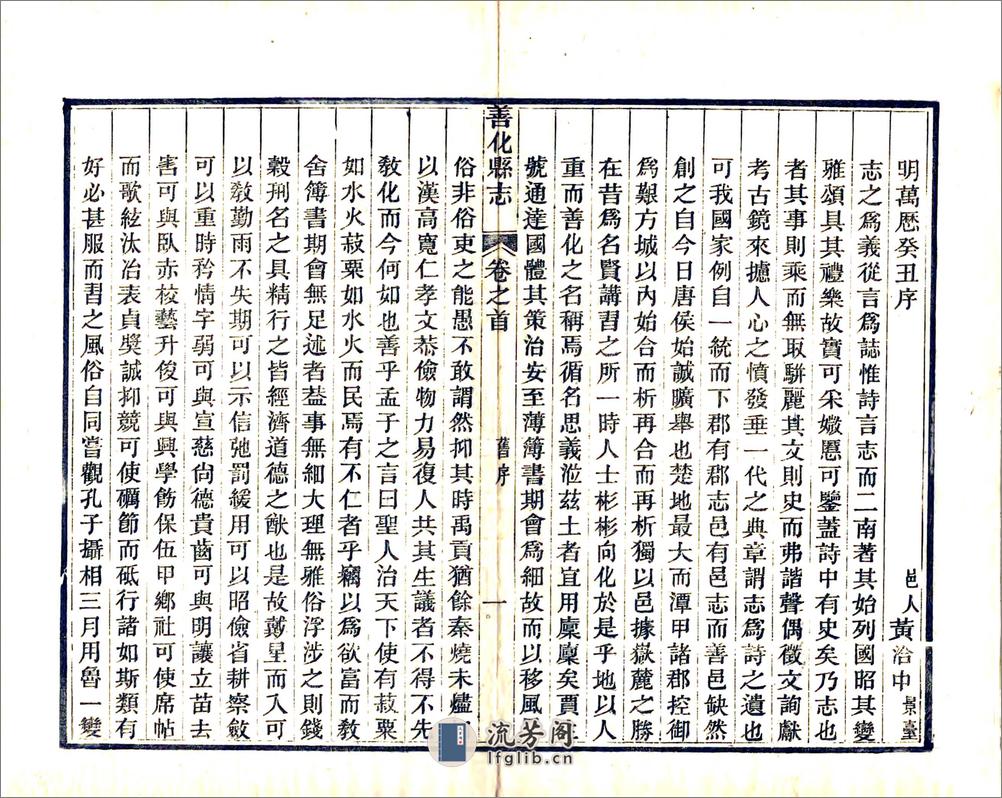 明萬歷癸丑序
邑人黃洽中景臺
志之爲義從言爲誌惟詩言志而二南著其始列國昭其變
雅頌具其禮樂故寳可采媺慝可鑒蓋詩中有史矣乃志也
者其事則乘而無取駢麗其文則史而弗諧聲偶徵文詢獻
考古鏡來攄人心之憤發垂一代之典章謂志爲詩之遺也
可我國家例自一統而下郡有郡志邑有邑志而善邑缺然
創之自今日唐侯始誠曠舉也楚地最大而潭甲諸郡控御
爲艱方城以內始合而析再合而再析獨以邑據嶽麓之勝
在昔爲名賢講習之所一時人士彬彬向化於是乎地以人
重而善化之名稱焉循名思義涖茲土者宜用廩廩矣賈生
號通達國體其策治安至薄簿書期會爲細故而以移風
善化縣志 卷之首 舊序 一
俗非俗吏之能愚不敢謂然抑其時禹貢猶餘秦燒未燼
以漢高寬仁孝文恭儉物力易復人共其生議者不得不先
敎化而今何如也善乎孟子之言曰聖人治天下使有菽粟
如水火菽粟如水火而民焉有不仁者乎竊以爲欲富而敎
舍簿書期會無足述者葢事無細大理無雅俗浮涉之則錢
穀刑名之具精行之皆經濟道德之猷也是故戴星而入可
以敎勤雨不失期可以示信弛罰緩用可以昭儉省耕察斂
可以重時矜情字弱可與宣慈尙德貴齒可與明讓立苗去
害可與臥赤校藝升俊可與興學飭保伍甲鄉社可使席帖
而歌絃汰冶表貞奬誠抑競可使礪節而砥行諸如斯類有
好必甚服而習之風俗自同嘗觀孔子攝相三月用魯一變
流芳阁
lfglib.cn